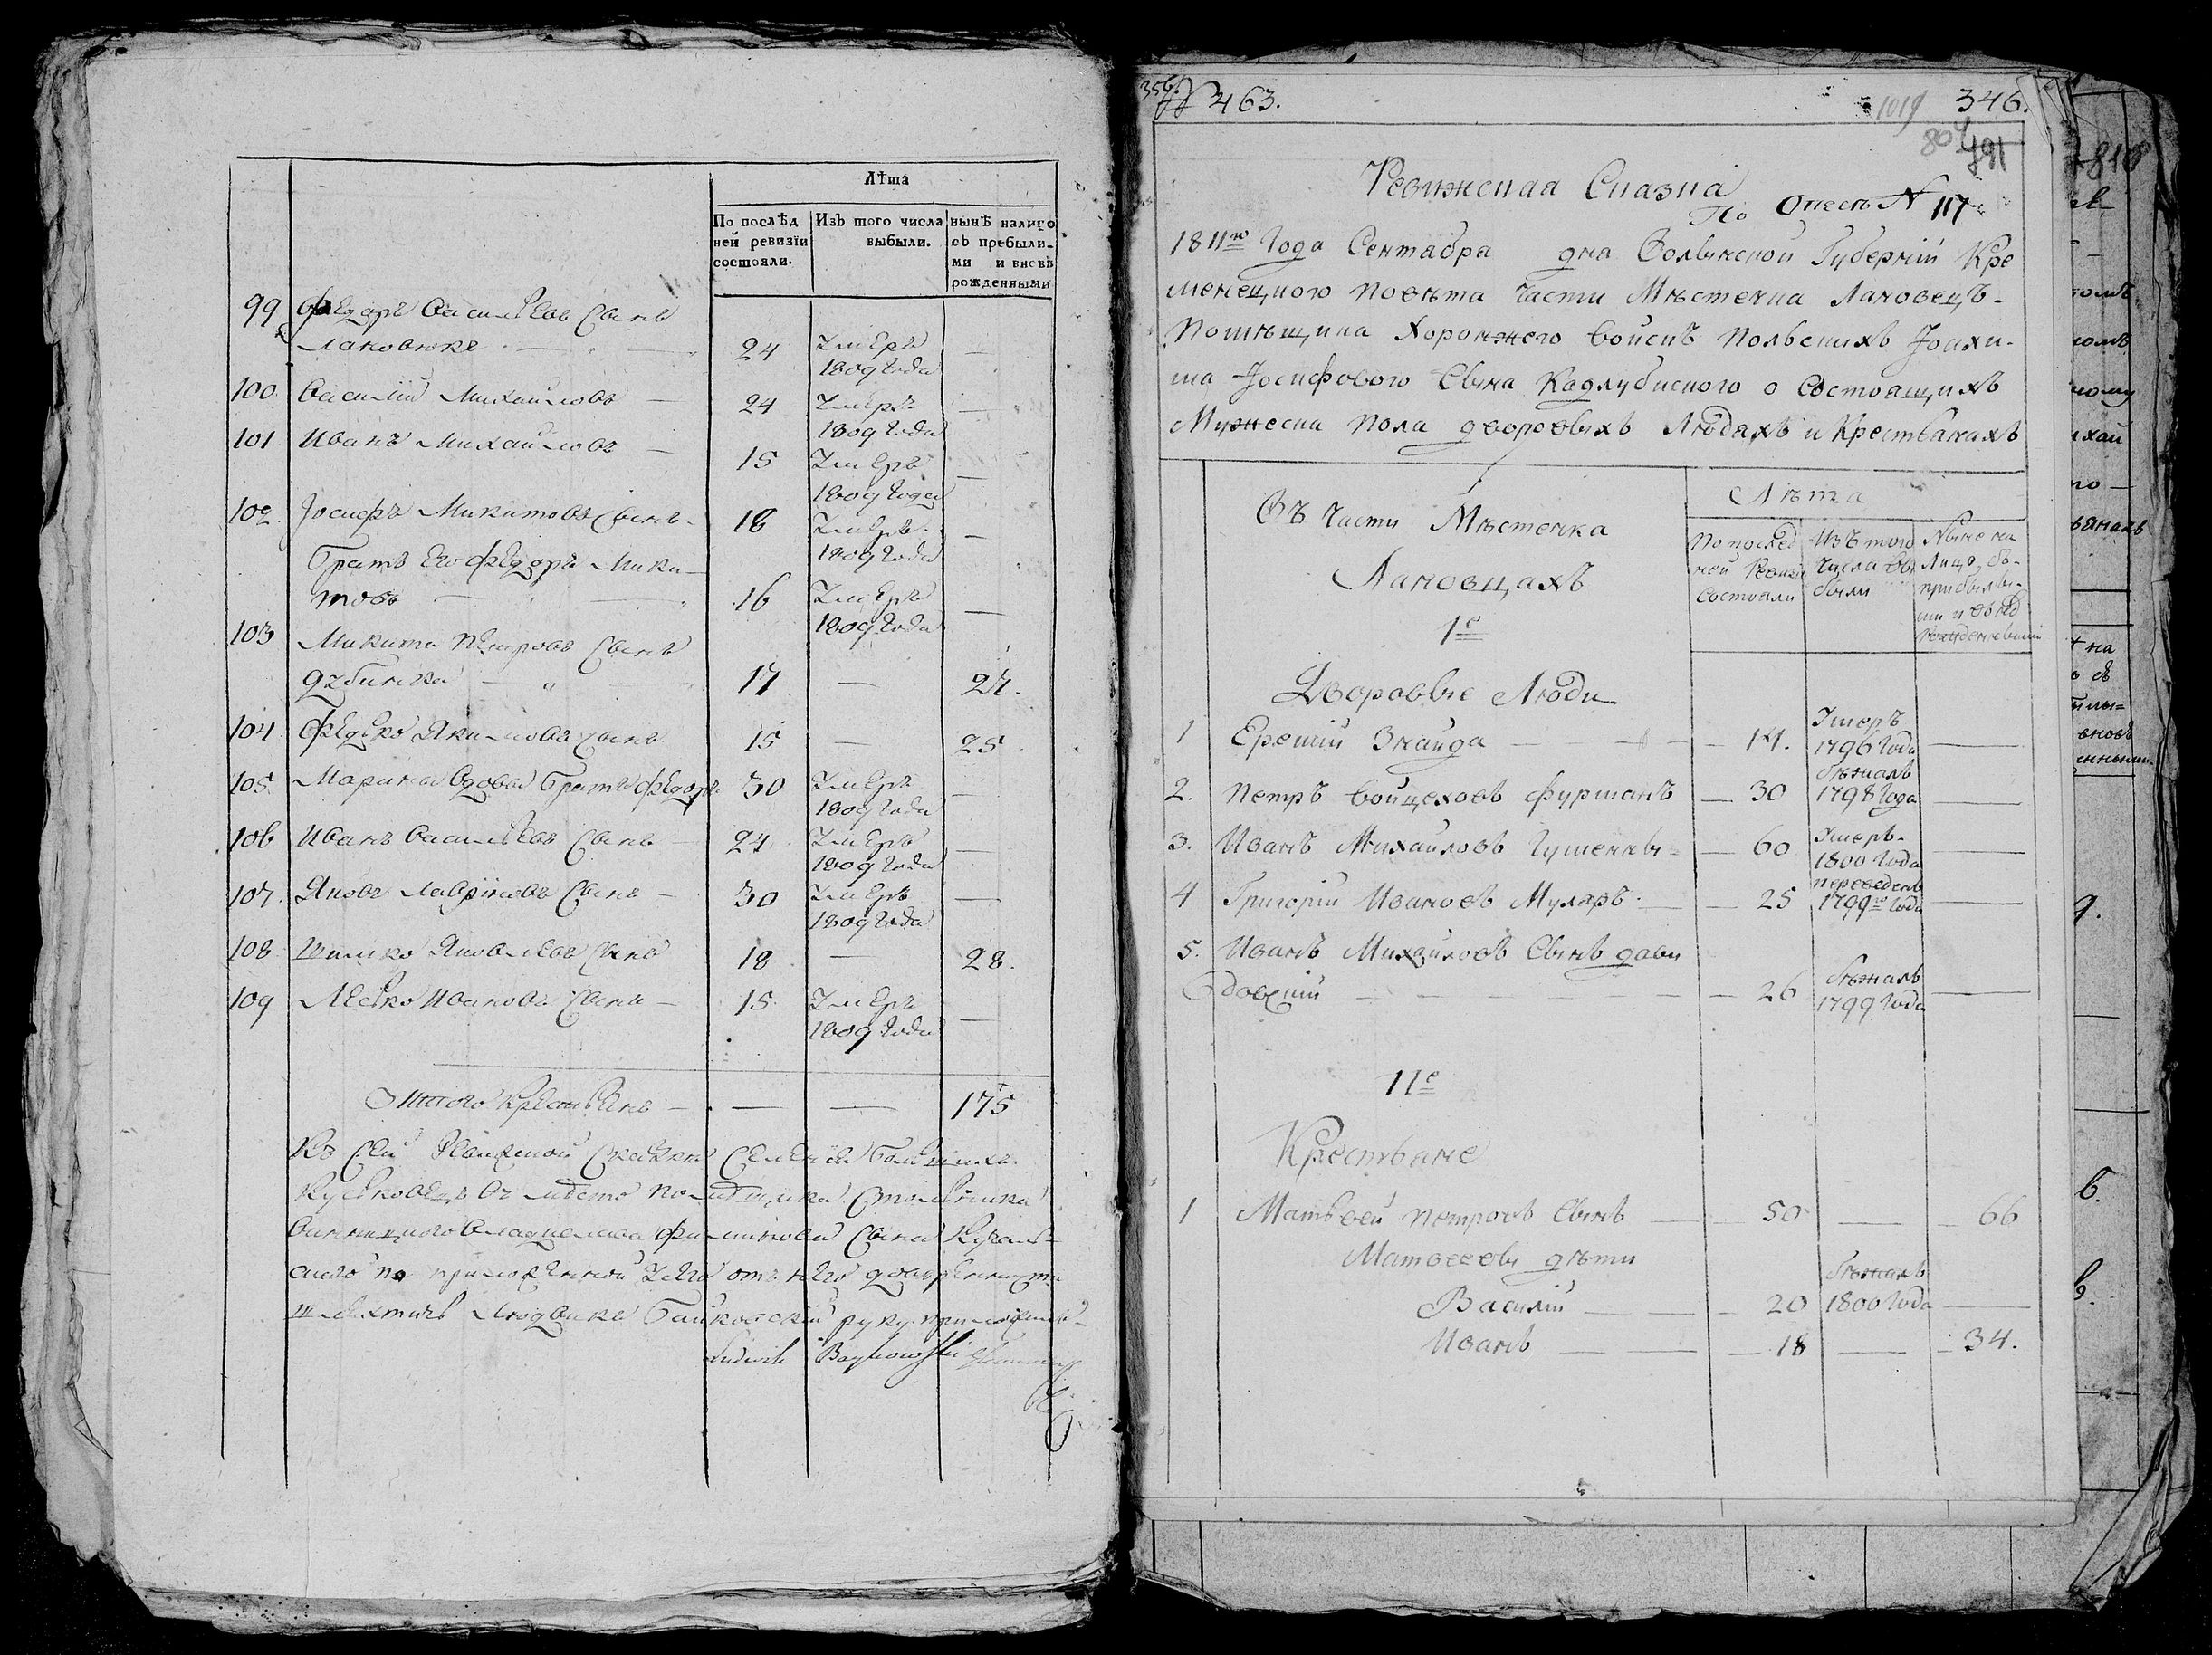 Лѣта
По послѣд Изъ того числа нынѣ налицо
ней ревизіи выбыли. съ прибылы-
состояли. ми и вновь
рожденными
99 Федоръ Васильевъ Сынъ
Лановюкъ 24 Умеръ —
1809 Года
100 Василій Михайловъ — 24 Умеръ —
1809 Года
101. Иванъ Михайловъ — 15 Умеръ —
1809 Года
102. Іосифъ Микитовъ Сынъ - 18 Умеръ —
1809 Года
Братъ Его Федоръ Мики-
товъ — 16 Умеръ —
1809 Года
103 Микита Петровъ Сынъ
17 — 27.
104. Федько Якимовъ Сынъ 15 — 25
105. Марины Вдовы Братъ Федоръ 30 Умеръ —
1809 Года
106 Иванъ Васильевъ Сынъ — 24 Умеръ —
1809 Года
107. Яковъ Лавриновъ Сынъ — 30 Умеръ —
1809 Года
108. Яковлевъ Сынъ 18 — 28.
109 Лесько Ивановъ Сынъ — 15. Умеръ —
1809 Года
Итого Крестьянъ — — — 175
Къ Сей Ревижской Сказки Селенія Большихъ
Куськовецъ въ мѣсто Помѣщика Стольника
Винницкого Сына
по приложенной у него отъ Него
шляхтичъ Людвикъ Байковскій руку приложилъ
Ludwik Baykowski
356.
№ 463. 1019 346.
804
791
Ревижская Сказка
По Описъ № 117
1811го Года Сентября дня Волынской Губерніи Кре
менецкого повѣта части Мѣстечка Лановецъ-
Помѣщика Хоронжего войскъ польскихъ Іоахи-
ма Іосифового Сына Кадлубиского о Состоящихъ
Мужеска пола дворовыхъ Людяхъ и Крестьянахъ
Въ Части Мѣстечка
Лановцахъ
Лѣта
По послед Изъ того Ныне на
ней Ревизіи числа вы Лицо, съ
Состояли были прибылы-
ми и вновь
Рожденными
1е
Дворовые Люди
1 Еремій Знайда — 14. Умеръ
1796 Года —
2. Петръ Войцеховъ фурманъ — 30 бѣжалъ
1798 Года —
3. Иванъ Михайловъ — 60 Умеръ
1800 Года —
4 Григорій Ивановъ Муляръ — 25 переведенъ
1799го Года —
5. Иванъ Михайловъ Сынъ Дави
довскій — 26 бѣжалъ
1799 Года —
11е
Крестьяне
1 Матьвей Петровъ Сынъ — 50 — 66
Матвеевы дѣти
Василій — 20 бѣжалъ
1800 Года —
Иванъ — 18 — 34.